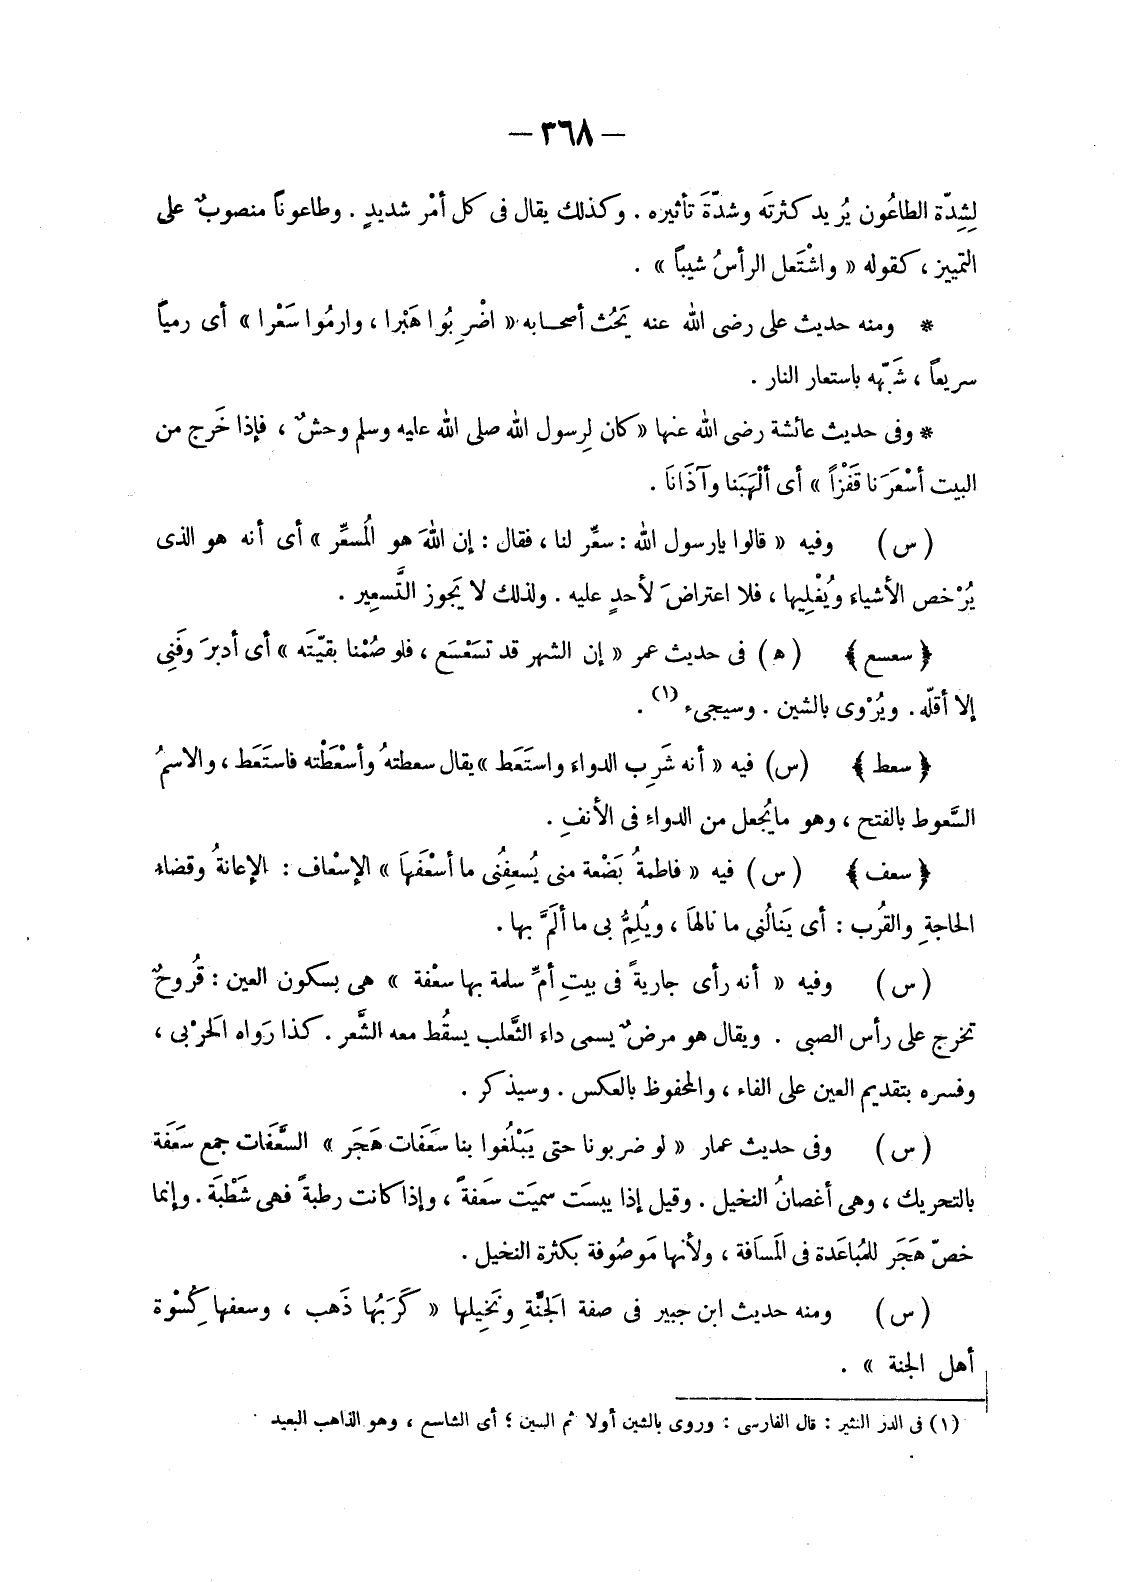 — ٣٦٨ —
لِشِدّة الطاعُون يُريد كثرتَه وشدّةَ تأثيره . وكذلك يقال فى كل أمْر شديدٍ . وطاعوناً منصوبٌ على
التمييز ، كقوله « واشْتَعل الرأسُ شيباً » .
* ومنه حديث على رضى الله عنه يَحُث أصحابه « اضْرِبُوا هَبْرا ، وارمُوا سَعْرا » أى رمياً
سريعاً ، شَبّهه باستعار النار .
* وفى حديث عائشة رضى الله عنها « كان لِرسول الله صلى الله عليه وسلم وحشٌ ، فإذا خَرج من
البيت أسْعَرَنا قَفْزاً » أى ألْهَبَنا وآذَانَا .
( س ) وفيه « قالوا يارسول الله : سعِّر لنا ، فقال : إن اللهَ هو المُسعِّر » أى أنه هو الذى
يُرْخص الأشياء ويُغْلِيها ، فلا اعتراضَ لأحدٍ عليه . ولذلك لا يَجوز التَّسعِير .
﴿ سعسع ﴾ ( ه ) فى حديث عمر « إن الشهر قد تسَعْسَع ، فلو صُمْنا بقيّتَه » أى أدبرَ وفَنِى
إلا أقلّه . ويُرْوى بالشين . وسيجىء (١) .
﴿ سعط ﴾ (س) فيه « أنه شَرِب الدواء واستَعَط » يقال سعطتهُ وأسْعَطْته فاستَعَط ، والاسمُ
السَّعوط بالفتح ، وهو مايُجعل من الدواء فى الأنفِ .
﴿ سعف ﴾ ( س ) فيه « فاطمةُ بَضْعة منى يُسعِفُنى ما أسْعَفَهَا » الإسْعاف : الإعانةُ وقضاء
الحاجةِ والقُرب : أى يَنالُنى ما نالهَا ، ويُلِمُّ بى ما ألَمَّ بها .
( س ) وفيه « أنه رأى جاريةً فى بيتِ أمِّ سلمة بها سعْفة » هى بسكون العين : قُروحٌ
تخرج على رأس الصبى . ويقال هو مرضٌ يسمى داء الثَّعلب يسقُط معه الشَّعر . كذا رَواه الَحرْبى ،
وفسره بتقديم العين على الفاء ، والمحفوظ بالعكس . وسيذكر .
( س ) وفى حديث عمار « لو ضربونا حتى يَبْلُغوا بنا سَعَفات هَجَر » السَّعَفات جمع سَعَفة
بالتحريك ، وهى أغصانُ النخيل . وقيل إذا يبسَت سميَت سَعفةً ، وإذا كانت رطبةً فهى شَطْبَة . وإنما
خصّ هَجَر للمُباعَدة فى المَسَافة ، ولأنها مَوصُوفة بكثرة النخيل .
( س ) ومنه حديث ابن جبير فى صفة الَجنَّةِ ونَخِيلها « كَرَبُها ذَهب ، وسعفها كِسُوْة
أهل الجنة » .
(١) فى الدر النثير : قال الفارسى : وروى بالشين أولا ثم السين ؛ أى الشاسع ، وهو الذاهب البعيد .